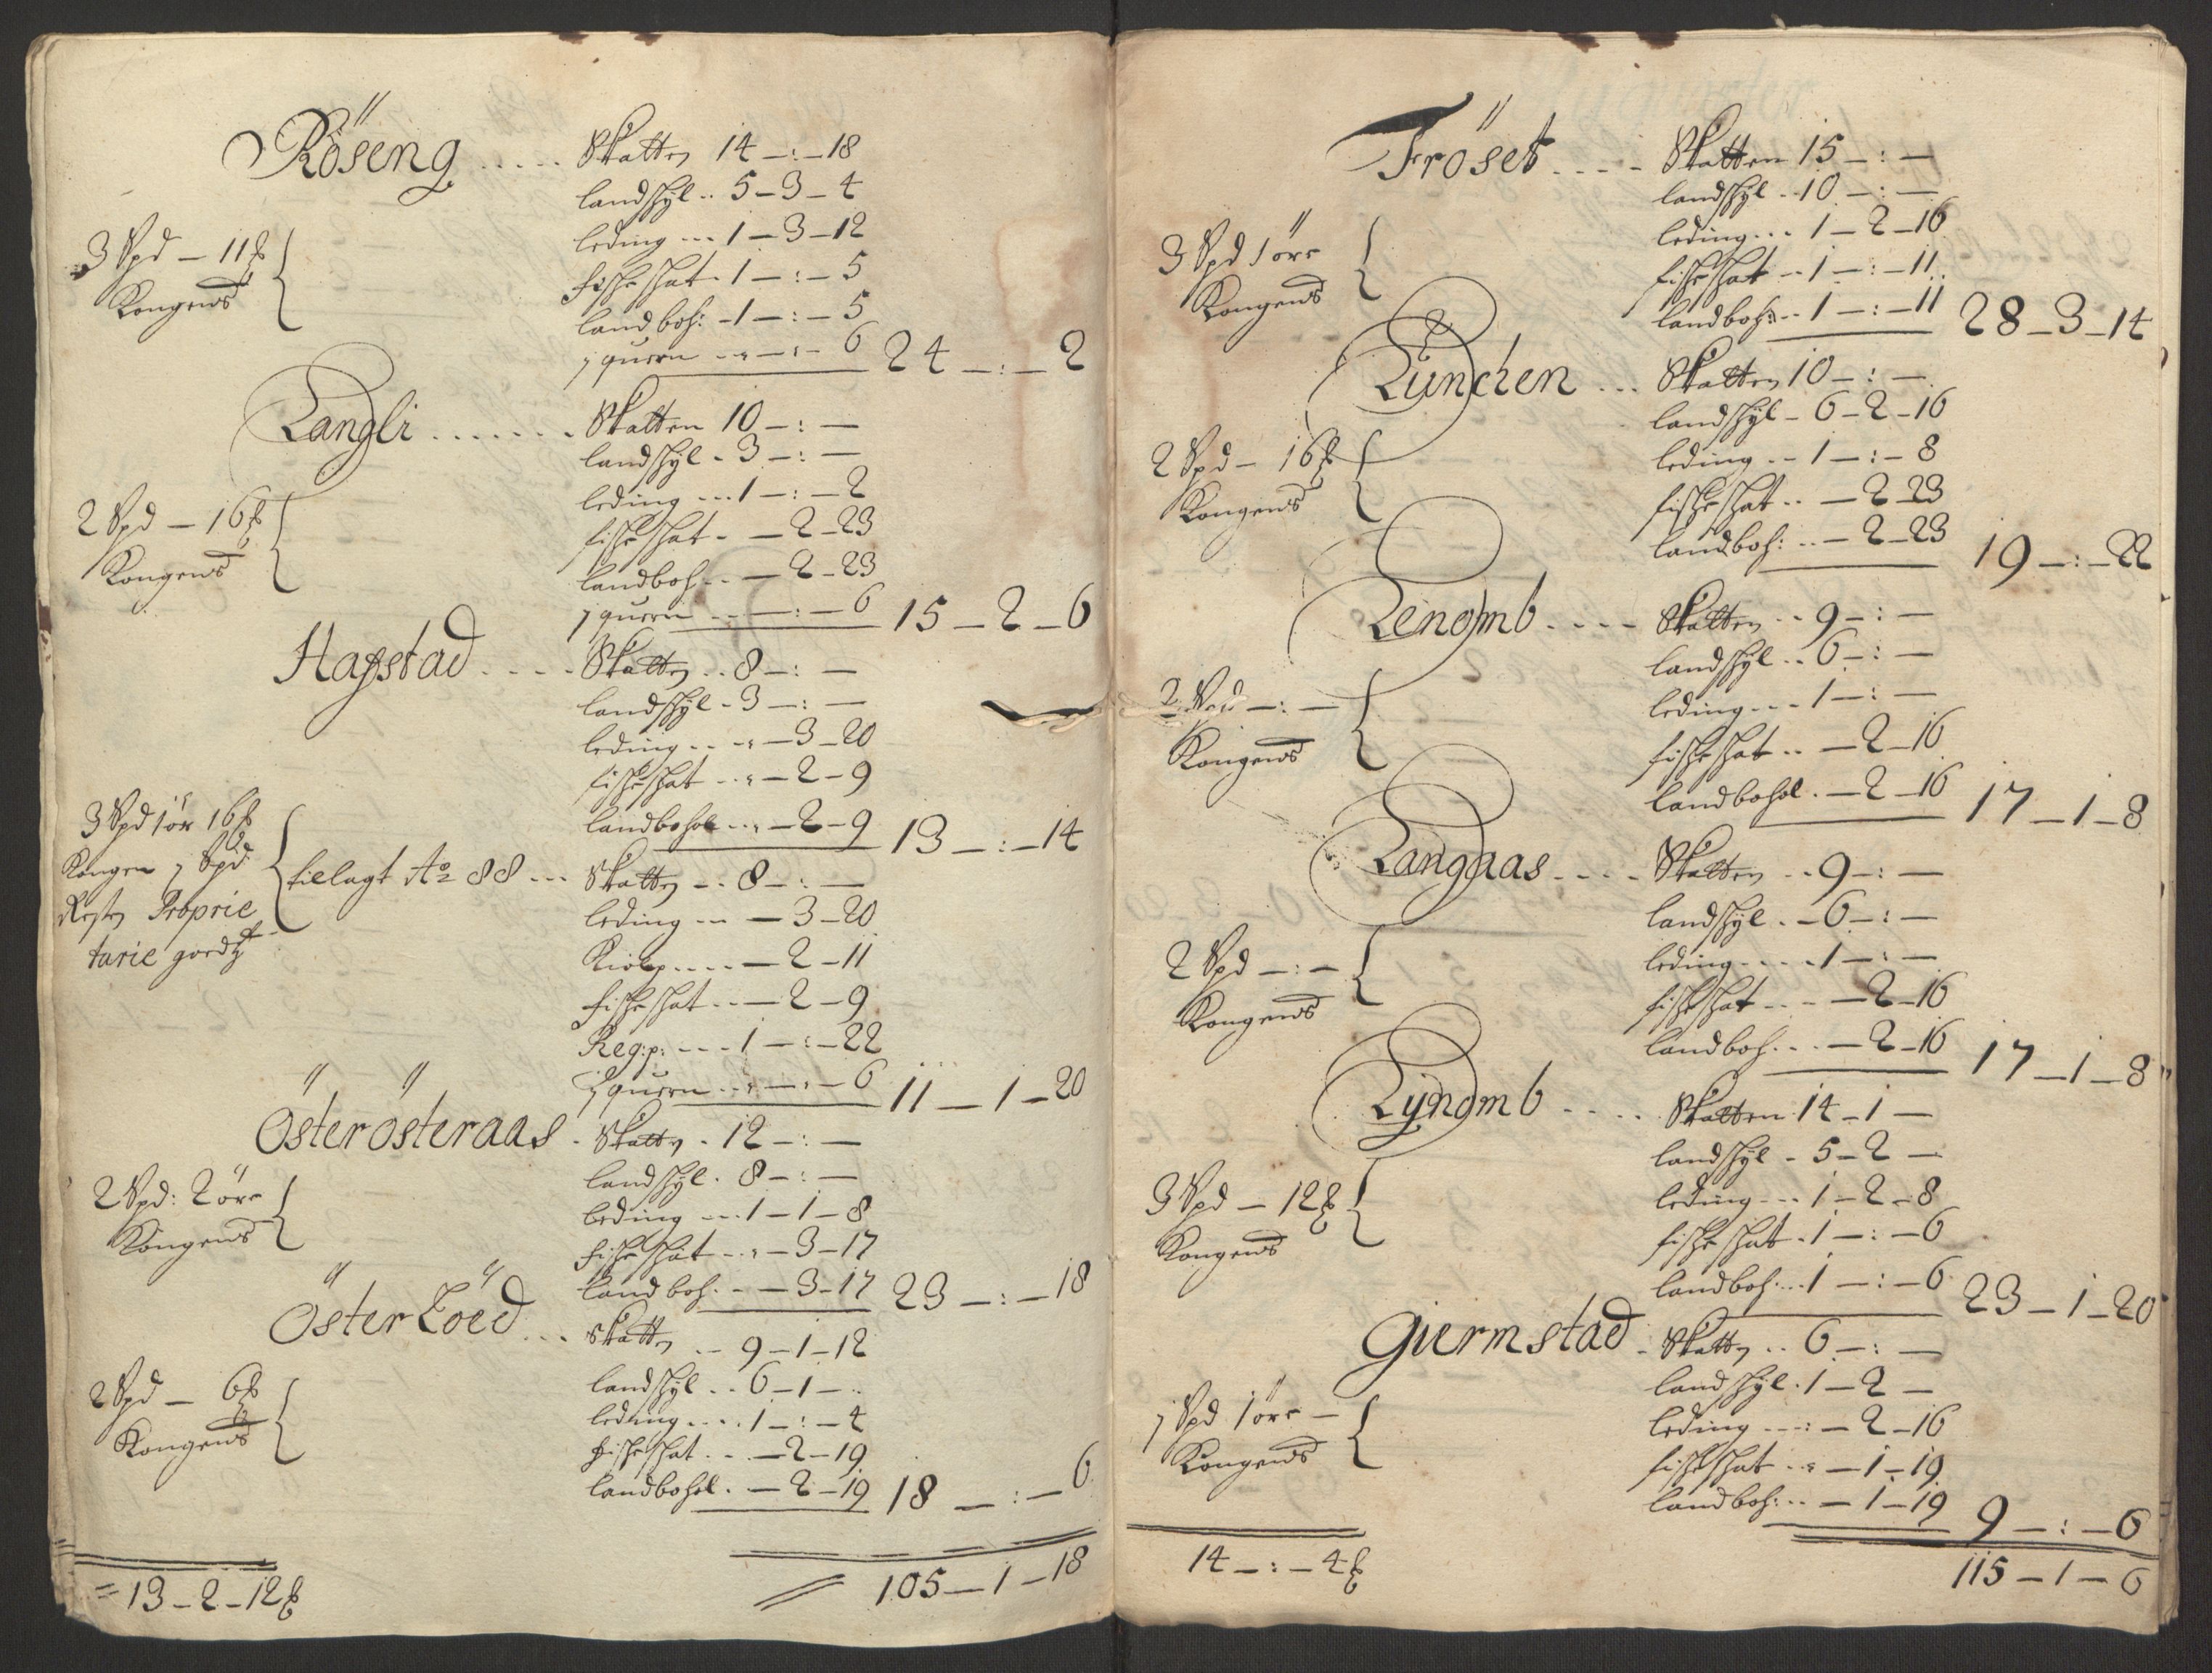 Röseng ..... Skatten 14 – : – 18
landskyl .. 5 – 3 – 4
leding ... 1 – 3 – 12
3 Spd – 11 ℔
Kongens
fiskeskat . 1 – : – 5
landboh: – 1 – : – 5
1 quern .. „ – : – 6 24 – : – 2
Langli ....... Skatten 10 – : –
landskyl . 3 – : –
leding ... 1 – : – 2
2 Spd – 16 ℔
Kongens
fiskeskat . – 2 – 23
landboh .. – 2 – 23
1 quern .. – : – 6 15 – 2 – 6
Hagstad .... Skatten .. 8 – : –
landskyl . 3 – : –
leding .. „ – 3 – 20
fiskeskat .. „ – 2 – 9
landbohol .. „ – 2 – 9 13 – : – 14
3 Spd 1 ör 16 ℔
Kongen 1 Spd:
Resten Proprie
tarie goedtz
tillagt Ao 88 ... Skatten .. 8 – : –
leding .. – 3 – 20
Kiolep .... – 2 – 11
fiskeskat .. – 2 – 9
Reg:p: ... 1 – : – 22
1 quern .. „ – „ – 6 11 – 1 – 20
Österösteraas . Skatten . 12 – : –
landskyl . 8 – : –
leding ... 1 – 1 – 8
2 Spd: 2 öre
Kongens
fiskeskat .. „ – 3 – 17
landboh . – 3 – 17 23 – : – 18
Öster Löed ... skatten .. 9 – 1 – 12
landskyl .. 6 – 1 –
leding .... 1 – : – 4
2 Spd – 6 ℔
Kongens
fiskeskat ... – 2 – 19
landbohol . – 2 – 19 18 – : – 6
= 13 – 2 – 12 ℔ 105 – 1 – 18
Fröset .... Skatten 15 – : –
landskyl . 10 – : –
leding ... 1 – 2 – 16
3 Spd 1 öre
Kongens
fiskeskat .. 1 – : – 11
landboh: .. 1 – : – 11 28 – 3 – 14
Lünchen ... Skatten 10 – : –
landskyl – 6 – 2 – 16
leding .. 1 – : – 8
2 Spd – 16 ℔
Kongens
fiskeskat .. – 2 – 23
landboh: .. – 2 – 23 19 – : – 22
Lenomb .... Skatten .. 9 – : –
landskyl .. 6 – : –
leding ... 1 – : –
2 Spd – : –
Kongens
fiskeskat .. – 2 – 16
landbohol . – 2 – 16 17 – 1 – 8
Langaas .... Skatten .. 9 – : –
landskyl .. 6 – : –
leding .... 1 – : –
2 Spd – : –
Kongens
fiskeskat ... – 2 – 16
landboh ... – 2 – 16 17 – 1 – 8
Lyndmb .... Skatten 14 – 1 –
landskyl . 5 – 2 –
leding ... 1 – 2 – 8
3 Spd – 12 ℔
Kongens
fiskeskat . 1 – : – 6
landboh ... 1 – : – 6 23 – 1 – 20
Giermstad . Skatten .. 6 – : –
landskyl . 1 – 2 –
leding ... : – 2 – 16
1 Spd 1 öre –
Kongens
fiskeskat .. „ – 1 – 19
landboh: .. – 1 – 19 9 – : – 6
14 – : – 4 ℔ 115 – 1 – 6